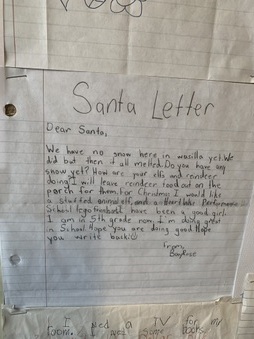 Santa Letter
Dear Santa,
We have no snow here in wasilla yet. We
did but then it all melled. Do you have any
snow yet? How are your elfs and reindeer
doing I will leave reindeer food out on the
porch for them. For Christmas I would like
a stuffed animal elf, and a Heartlake Performance
School lego friends. I have been a good girl.
I am in 5th grade now, I'm doing great
in School. Hope you are doing good Hope
you write back!
From,
I need a TV for my
room. I need some